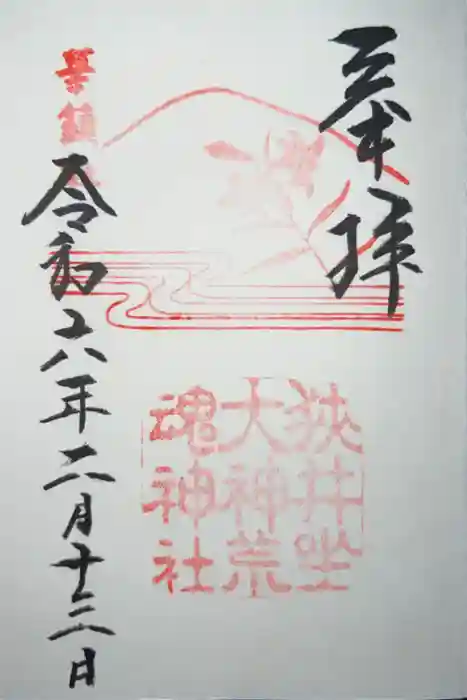 奉拝
狭井坐
大神荒
魂神社
華鎮社
令和六年二月十三日